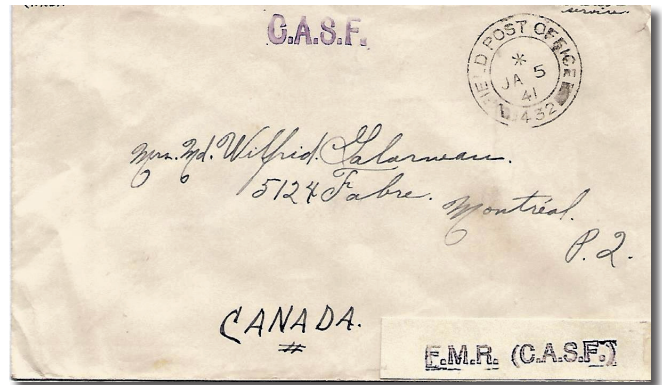 service.
C.A.S.F.
FIELD POST OFFICE
* JA 5
41
432
Mrs. Md. Wilfrid. Galarneau.
5124 Fabre. Montréal.
P.Q.
CANADA.
F.M.R. (C.A.S.F.)